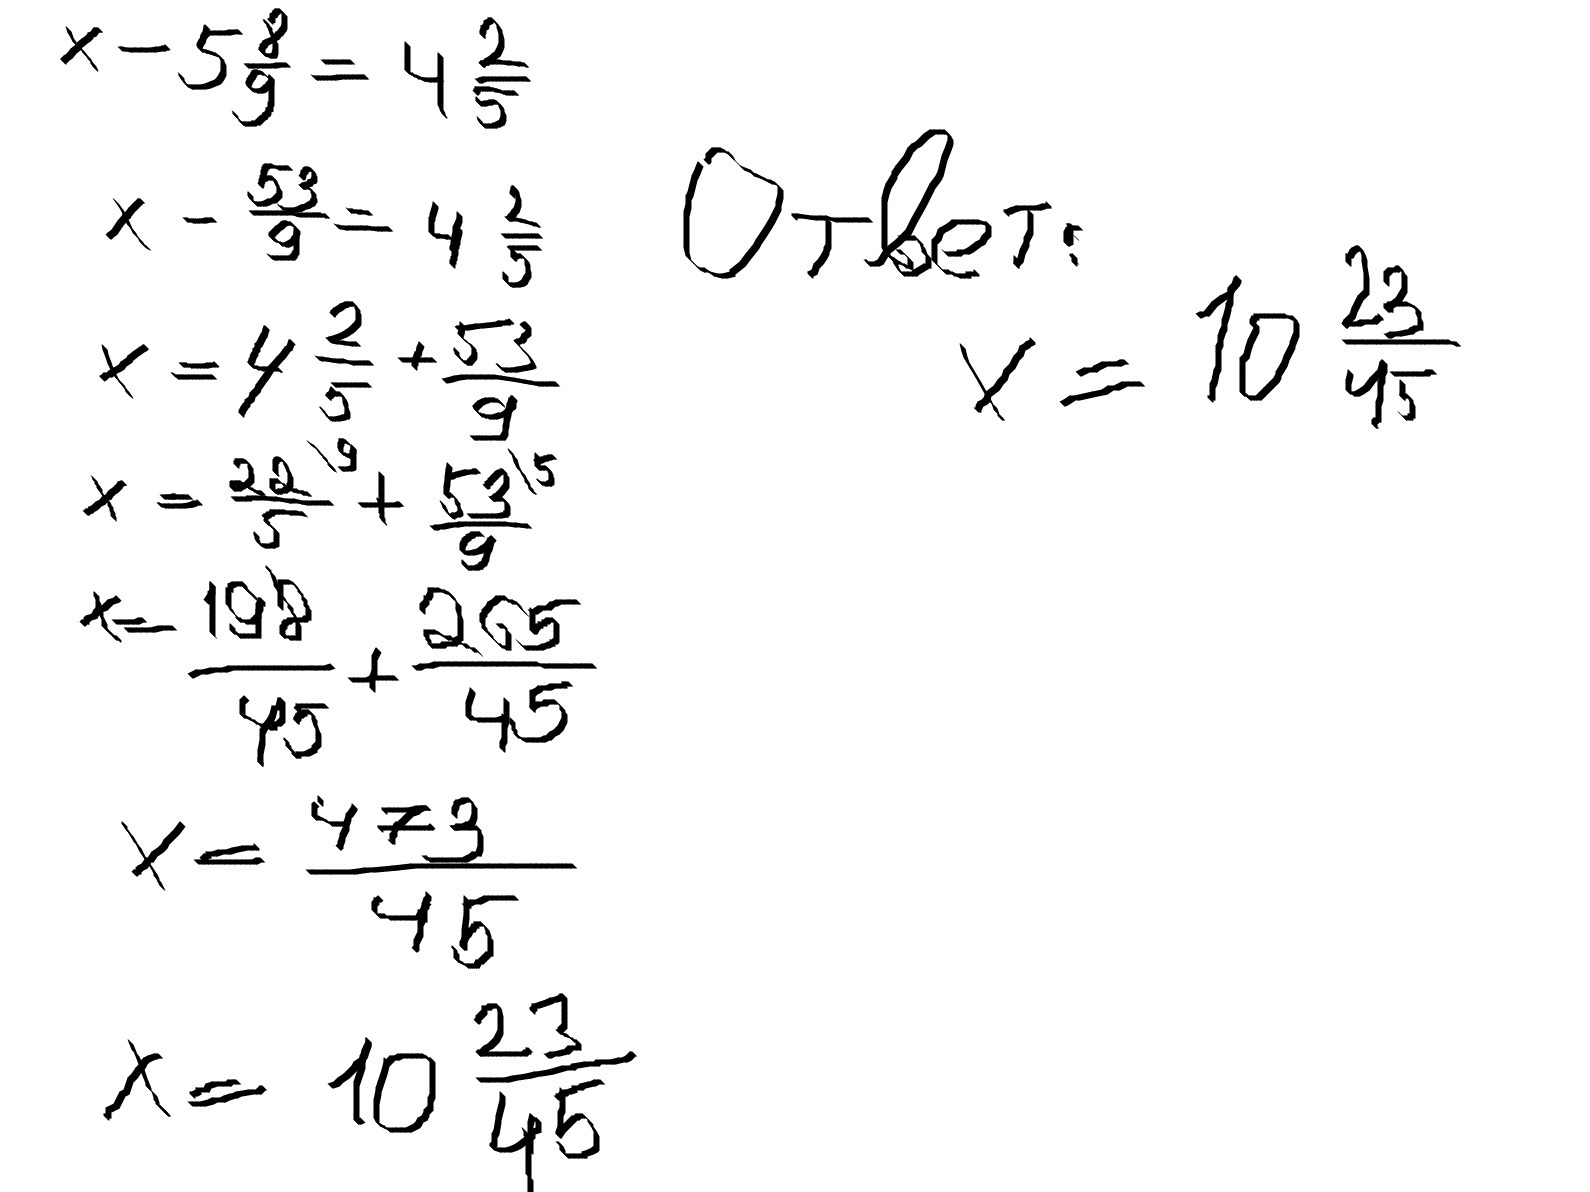 x - 5 8/9 = 4 2/5
x - 53/9 = 4 2/5
x = 4 2/5 + 53/9
x = 22/5 \9 + 53/9 \5
x = 198/45 + 265/45
x = 473/45
x = 10 23/45
Ответ:
x = 10 23/45